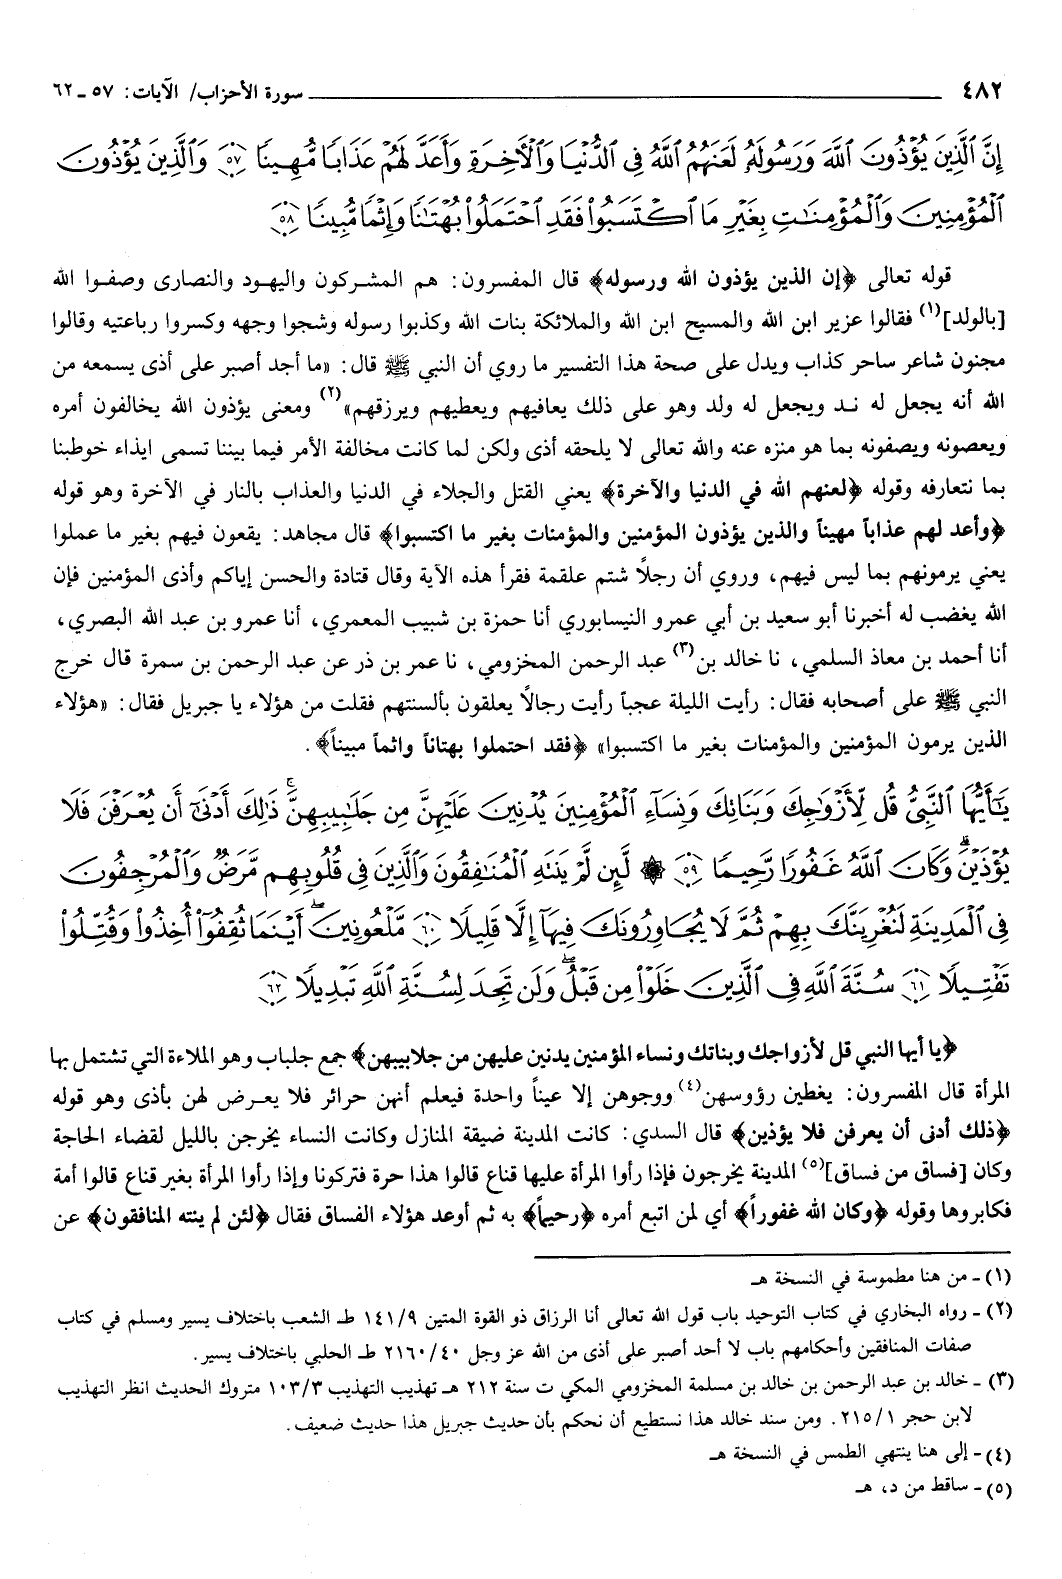 ٤٨٢ ــــــ سورة الأحزاب/ الآيات: ٥٧ ـ ٦٢
إِنَّ ٱلَّذِينَ يُؤْذُونَ ٱللَّهَ وَرَسُولَهُۥ لَعَنَهُمُ ٱللَّهُ فِى ٱلدُّنْيَا وَٱلْأَخِرَةِ وَأَعَدَّ لَهُمْ عَذَابًا مُّهِينًا ٥٧ وَٱلَّذِينَ يُؤْذُونَ
ٱلْمُؤْمِنِينَ وَٱلْمُؤْمِنَٰتِ بِغَيْرِ مَا ٱكْتَسَبُوا۟ فَقَدِ ٱحْتَمَلُوا۟ بُهْتَٰنًا وَإِثْمًا مُّبِينًا ٥٨
قوله تعالى ﴿إن الذين يؤذون الله ورسوله﴾ قال المفسرون: هم المشركون واليهود والنصارى وصفوا الله
[بالولد](١) فقالوا عزير ابن الله والمسيح ابن الله والملائكة بنات الله وكذبوا رسوله وشجوا وجهه وكسروا رباعتيه وقالوا
مجنون شاعر ساحر كذاب ويدل على صحة هذا التفسير ما روي أن النبي ﷺ قال: «ما أجد أصبر على أذى يسمعه من
الله أنه يجعل له نـد ويجعل له ولد وهو على ذلك يعافيهم ويعطيهم ويرزقهم»(٢) ومعنى يؤذون الله يخالفون أمره
ويعصونه ويصفونه بما هو منزه عنه والله تعالى لا يلحقه أذى ولكن لما كانت مخالفة الأمر فيما بيننا تسمى ايذاء خوطبنا
بما نتعارفه وقوله ﴿لعنهم الله في الدنيا والآخرة﴾ يعني القتل والجلاء في الدنيا والعذاب بالنار في الآخرة وهو قوله
﴿وأعد لهم عذاباً مهيناً والذين يؤذون المؤمنين والمؤمنات بغير ما اكتسبوا﴾ قال مجاهد: يقعون فيهم بغير ما عملوا
يعني يرمونهم بما ليس فيهم، وروي أن رجلاً شتم علقمة فقرأ هذه الآية وقال قتادة والحسن إياكم وأذى المؤمنين فإن
الله يغضب له أخبرنا أبو سعيد بن أبي عمرو النيسابوري أنا حمزة بن شبيب المعمري، أنا عمرو بن عبد الله البصري،
أنا أحمد بن معاذ السلمي، نا خالد بن(٣) عبد الرحمن المخزومي، نا عمر بن ذر عن عبد الرحمن بن سمرة قال خرج
النبي ﷺ على أصحابه فقال: رأيت الليلة عجباً رأيت رجالاً يعلقون بألسنتهم فقلت من هؤلاء يا جبريل فقال: «هؤلاء
الذين يرمون المؤمنين والمؤمنات بغير ما اكتسبوا» ﴿فقد احتملوا بهتاناً واثماً مبيناً﴾.
يَٰٓأَيُّهَا ٱلنَّبِىُّ قُل لِّأَزْوَٰجِكَ وَبَنَاتِكَ وَنِسَآءِ ٱلْمُؤْمِنِينَ يُدْنِينَ عَلَيْهِنَّ مِن جَلَٰبِيبِهِنَّ ۚ ذَٰلِكَ أَدْنَىٰٓ أَن يُعْرَفْنَ فَلَا
يُؤْذَيْنَ ۗ وَكَانَ ٱللَّهُ غَفُورًا رَّحِيمًا ٥٩ ۞ لَّئِن لَّمْ يَنتَهِ ٱلْمُنَٰفِقُونَ وَٱلَّذِينَ فِى قُلُوبِهِم مَّرَضٌ وَٱلْمُرْجِفُونَ
فِى ٱلْمَدِينَةِ لَنُغْرِيَنَّكَ بِهِمْ ثُمَّ لَا يُجَاوِرُونَكَ فِيهَآ إِلَّا قَلِيلًا ٦٠ مَّلْعُونِينَ ۖ أَيْنَمَا ثُقِفُوٓا۟ أُخِذُوا۟ وَقُتِّلُوا۟
تَقْتِيلًا ٦١ سُنَّةَ ٱللَّهِ فِى ٱلَّذِينَ خَلَوْا۟ مِن قَبْلُ ۖ وَلَن تَجِدَ لِسُنَّةِ ٱللَّهِ تَبْدِيلًا ٦٢
﴿يا أيها النبي قل لأزواجك وبناتك ونساء المؤمنين يدنين عليهن من جلابيبهن﴾ جمع جلباب وهو الملاءة التي تشتمل بها
المرأة قال المفسرون: يغطين رؤوسهن(٤) ووجوهن إلا عيناً واحدة فيعلم أنهن حرائر فلا يعـرض لهن بأذى وهو قوله
﴿ذلك أدنى أن يعرفن فلا يؤذين﴾ قال السدي: كانت المدينة ضيقة المنازل وكانت النساء يخرجن بالليل لقضاء الحاجة
وكان [فساق من فساق](٥) المدينة يخرجون فإذا رأوا المرأة عليها قناع قالوا هذا حرة فتركونا وإذا رأوا المرأة بغير قناع قالوا أمة
فكابروها وقوله ﴿وكان الله غفوراً﴾ أي لمن اتبع أمره ﴿رحيماً﴾ به ثم أوعد هؤلاء الفساق فقال ﴿لئن لم ينته المنافقون﴾ عن
(١) ـ من هنا مطموسة في النسخة هـ
(٢) ـ رواه البخاري في كتاب التوحيد باب قول الله تعالى أنا الرزاق ذو القوة المتين ١٤١/٩ طـ الشعب باختلاف يسير ومسلم في كتاب
صفات المنافقين وأحكامهم باب لا أحد أصبر على أذى من الله عز وجل ٢١٦٠/٤٠ طـ الحلبي باختلاف يسير.
(٣) ـ خالد بن عبد الرحمن بن خالد بن مسلمة المخزومي المكي ت سنة ٢١٢ هـ تهذيب التهذيب ١٠٣/٣ متروك الحديث انظر التهذيب
لابن حجر ٢١٥/١. ومن سند خالد هذا نستطيع أن نحكم بأن حديث جبريل هذا حديث ضعيف.
(٤) ـ إلى هنا ينتهي الطمس في النسخة هـ
(٥) ـ ساقط من د، هـ